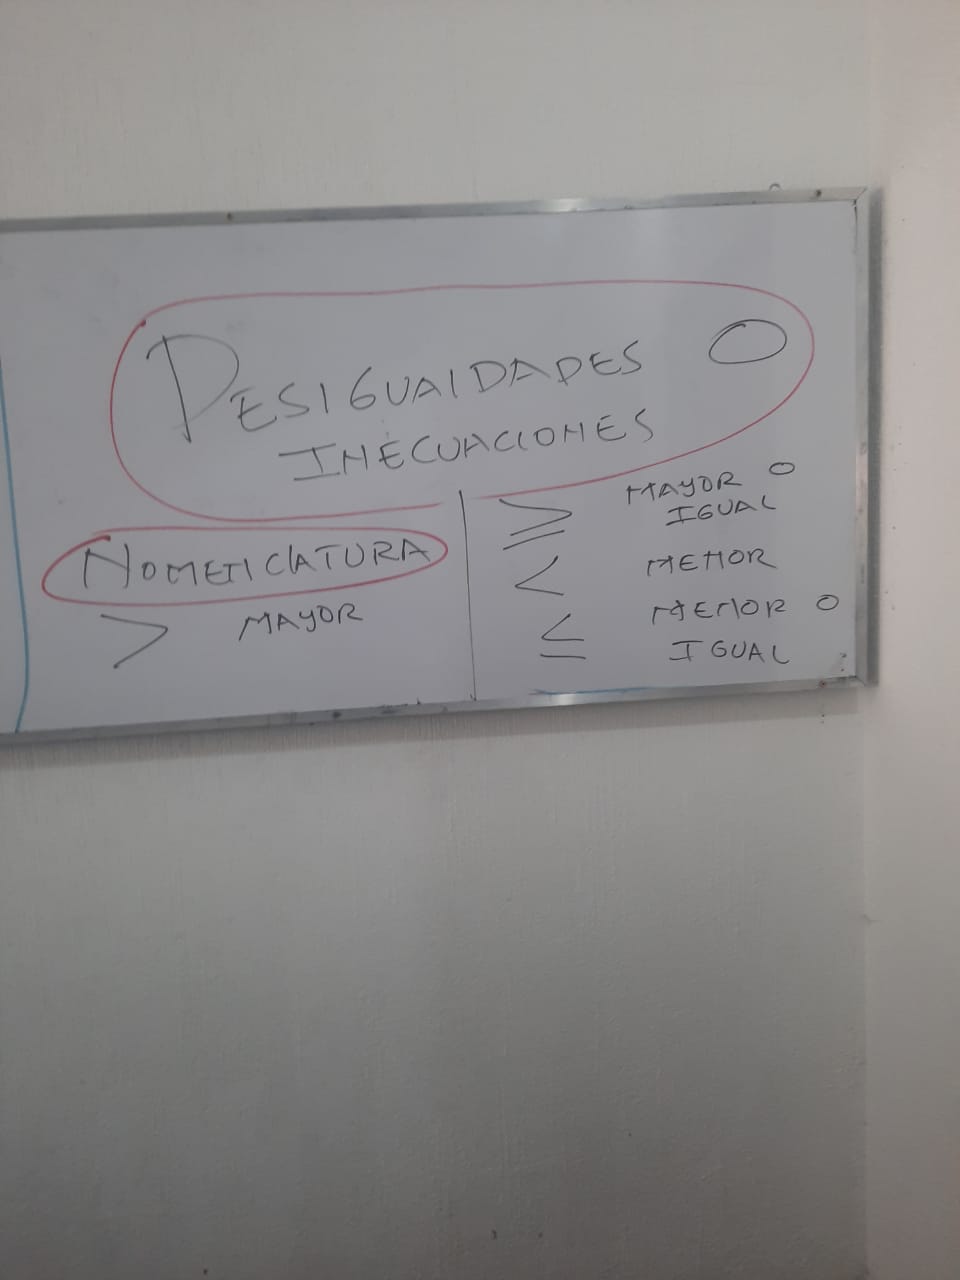 DESIGUALDADES O
INECUACIONES
NOMENCLATURA
> MAYOR
≥ MAYOR O
IGUAL
< MENOR
≤ MENOR O
IGUAL